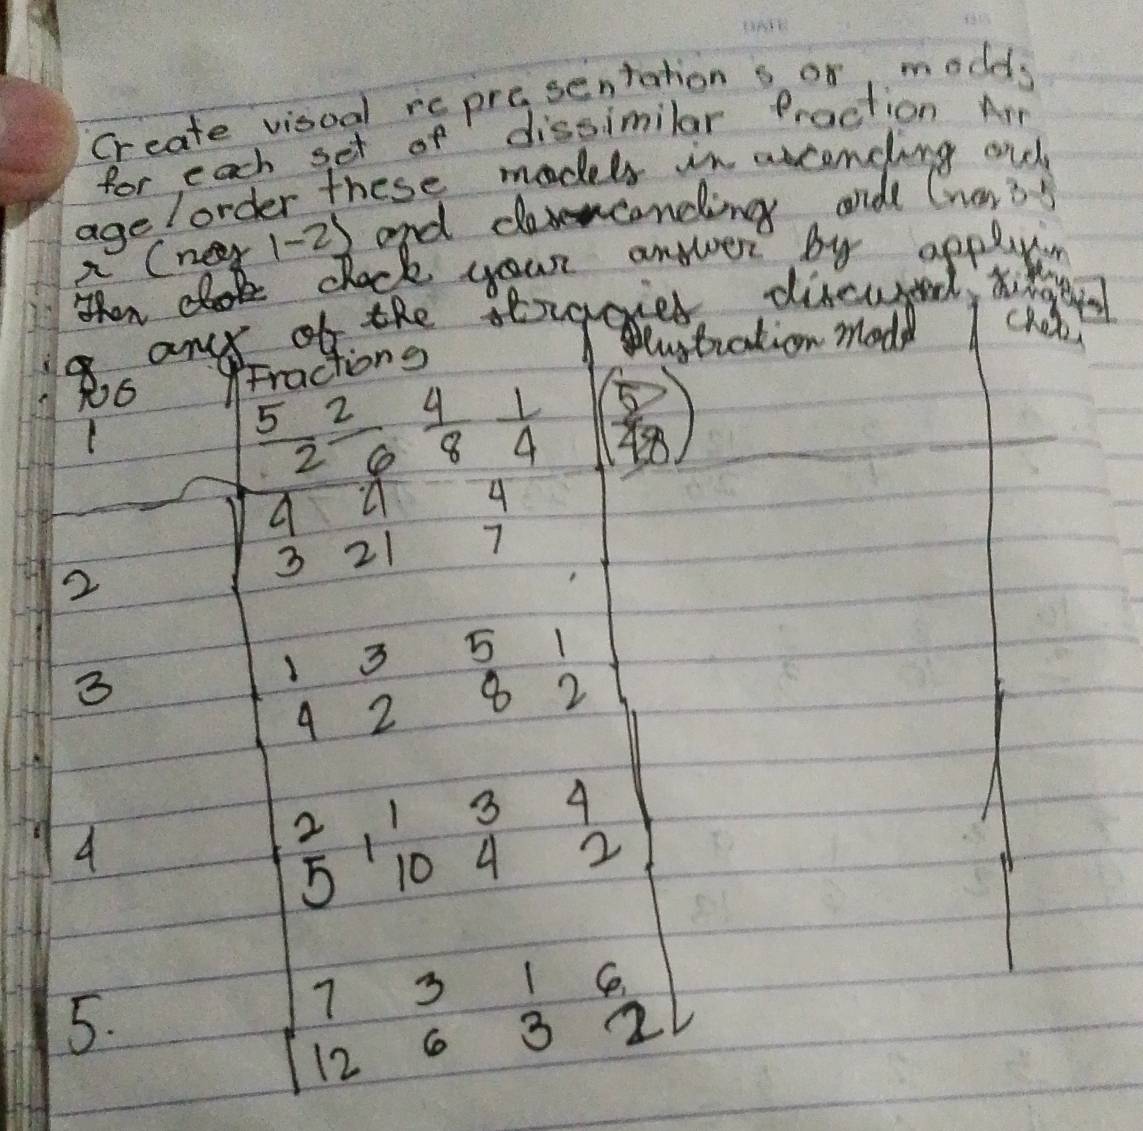 DATE
Create visual representations or models
for each set of dissimilar Fraction Arr
age/order these models in ascending ord
r (nos 1-2) and descending orde (nos 3-5
Then check your answer by applyin
g any of the stragies discussed
No Fractions Illustration Model Check
1 5/2 2/6 4/8 1/4 (5/48)
2 4/3 4/21 4/7
3 1/4 3/2 5/8 1/2
4 2/5 , 1/10 3/4 4/2
5. 7/12 3/6 1/3 6/2